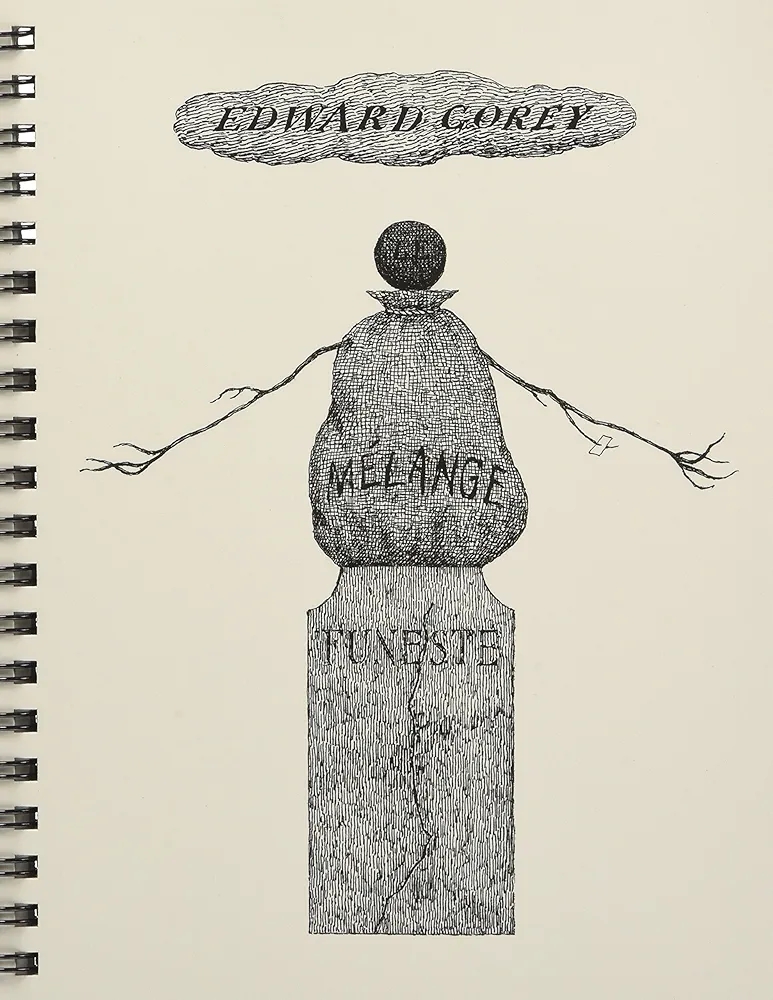 EDWARD GOREY
LE
MÉLANGE
FUNESTE